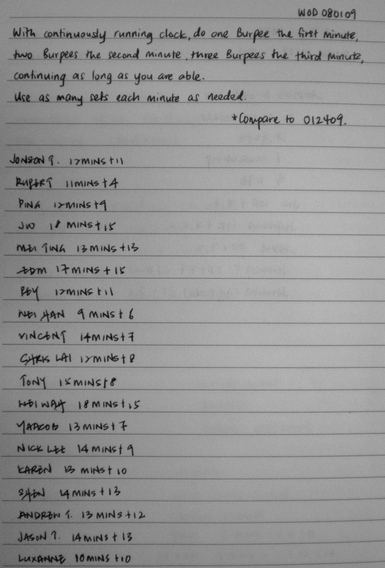 WOD 080109
With continuously running clock, do one Burpee the first minute,
two Burpees the second minute, three Burpees the third minute,
continuing as long as you are able.
Use as many sets each minute as needed.
*Compare to 012409.
JONSON T. 12MINS+11
RUPERT 11MINS+4
PING 12MINS+9
JW 18 MINS+15
MEI TING 13MINS+13
EDM 17MINS+15
REY 12MINS+11
WEI HAN 9 MINS+6
VINCENT 14MINS+7
CHRIS LAI 12MINS+8
TONY 15MINS+8
WEI WAH 18MINS+15
13MINS+7
NICK LEE 14MINS+9
KAREN 13 MINS+10
SHEN 14MINS+13
ANDREW T. 13 MINS+12
JASON T. 14MINS+13
LUXANNE 10MINS+10